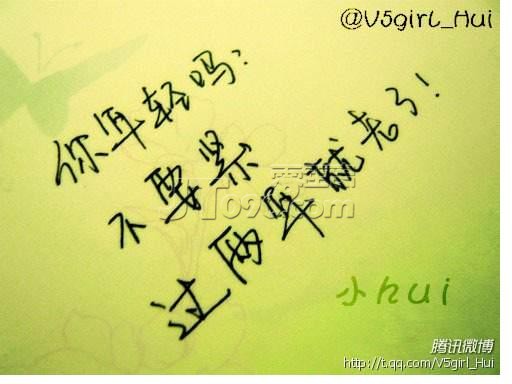 @V5girl_Hui
你年轻吗?
不要紧
过两年就老了!
小hui
腾讯微博
http://t.qq.com/V5girl_Hui